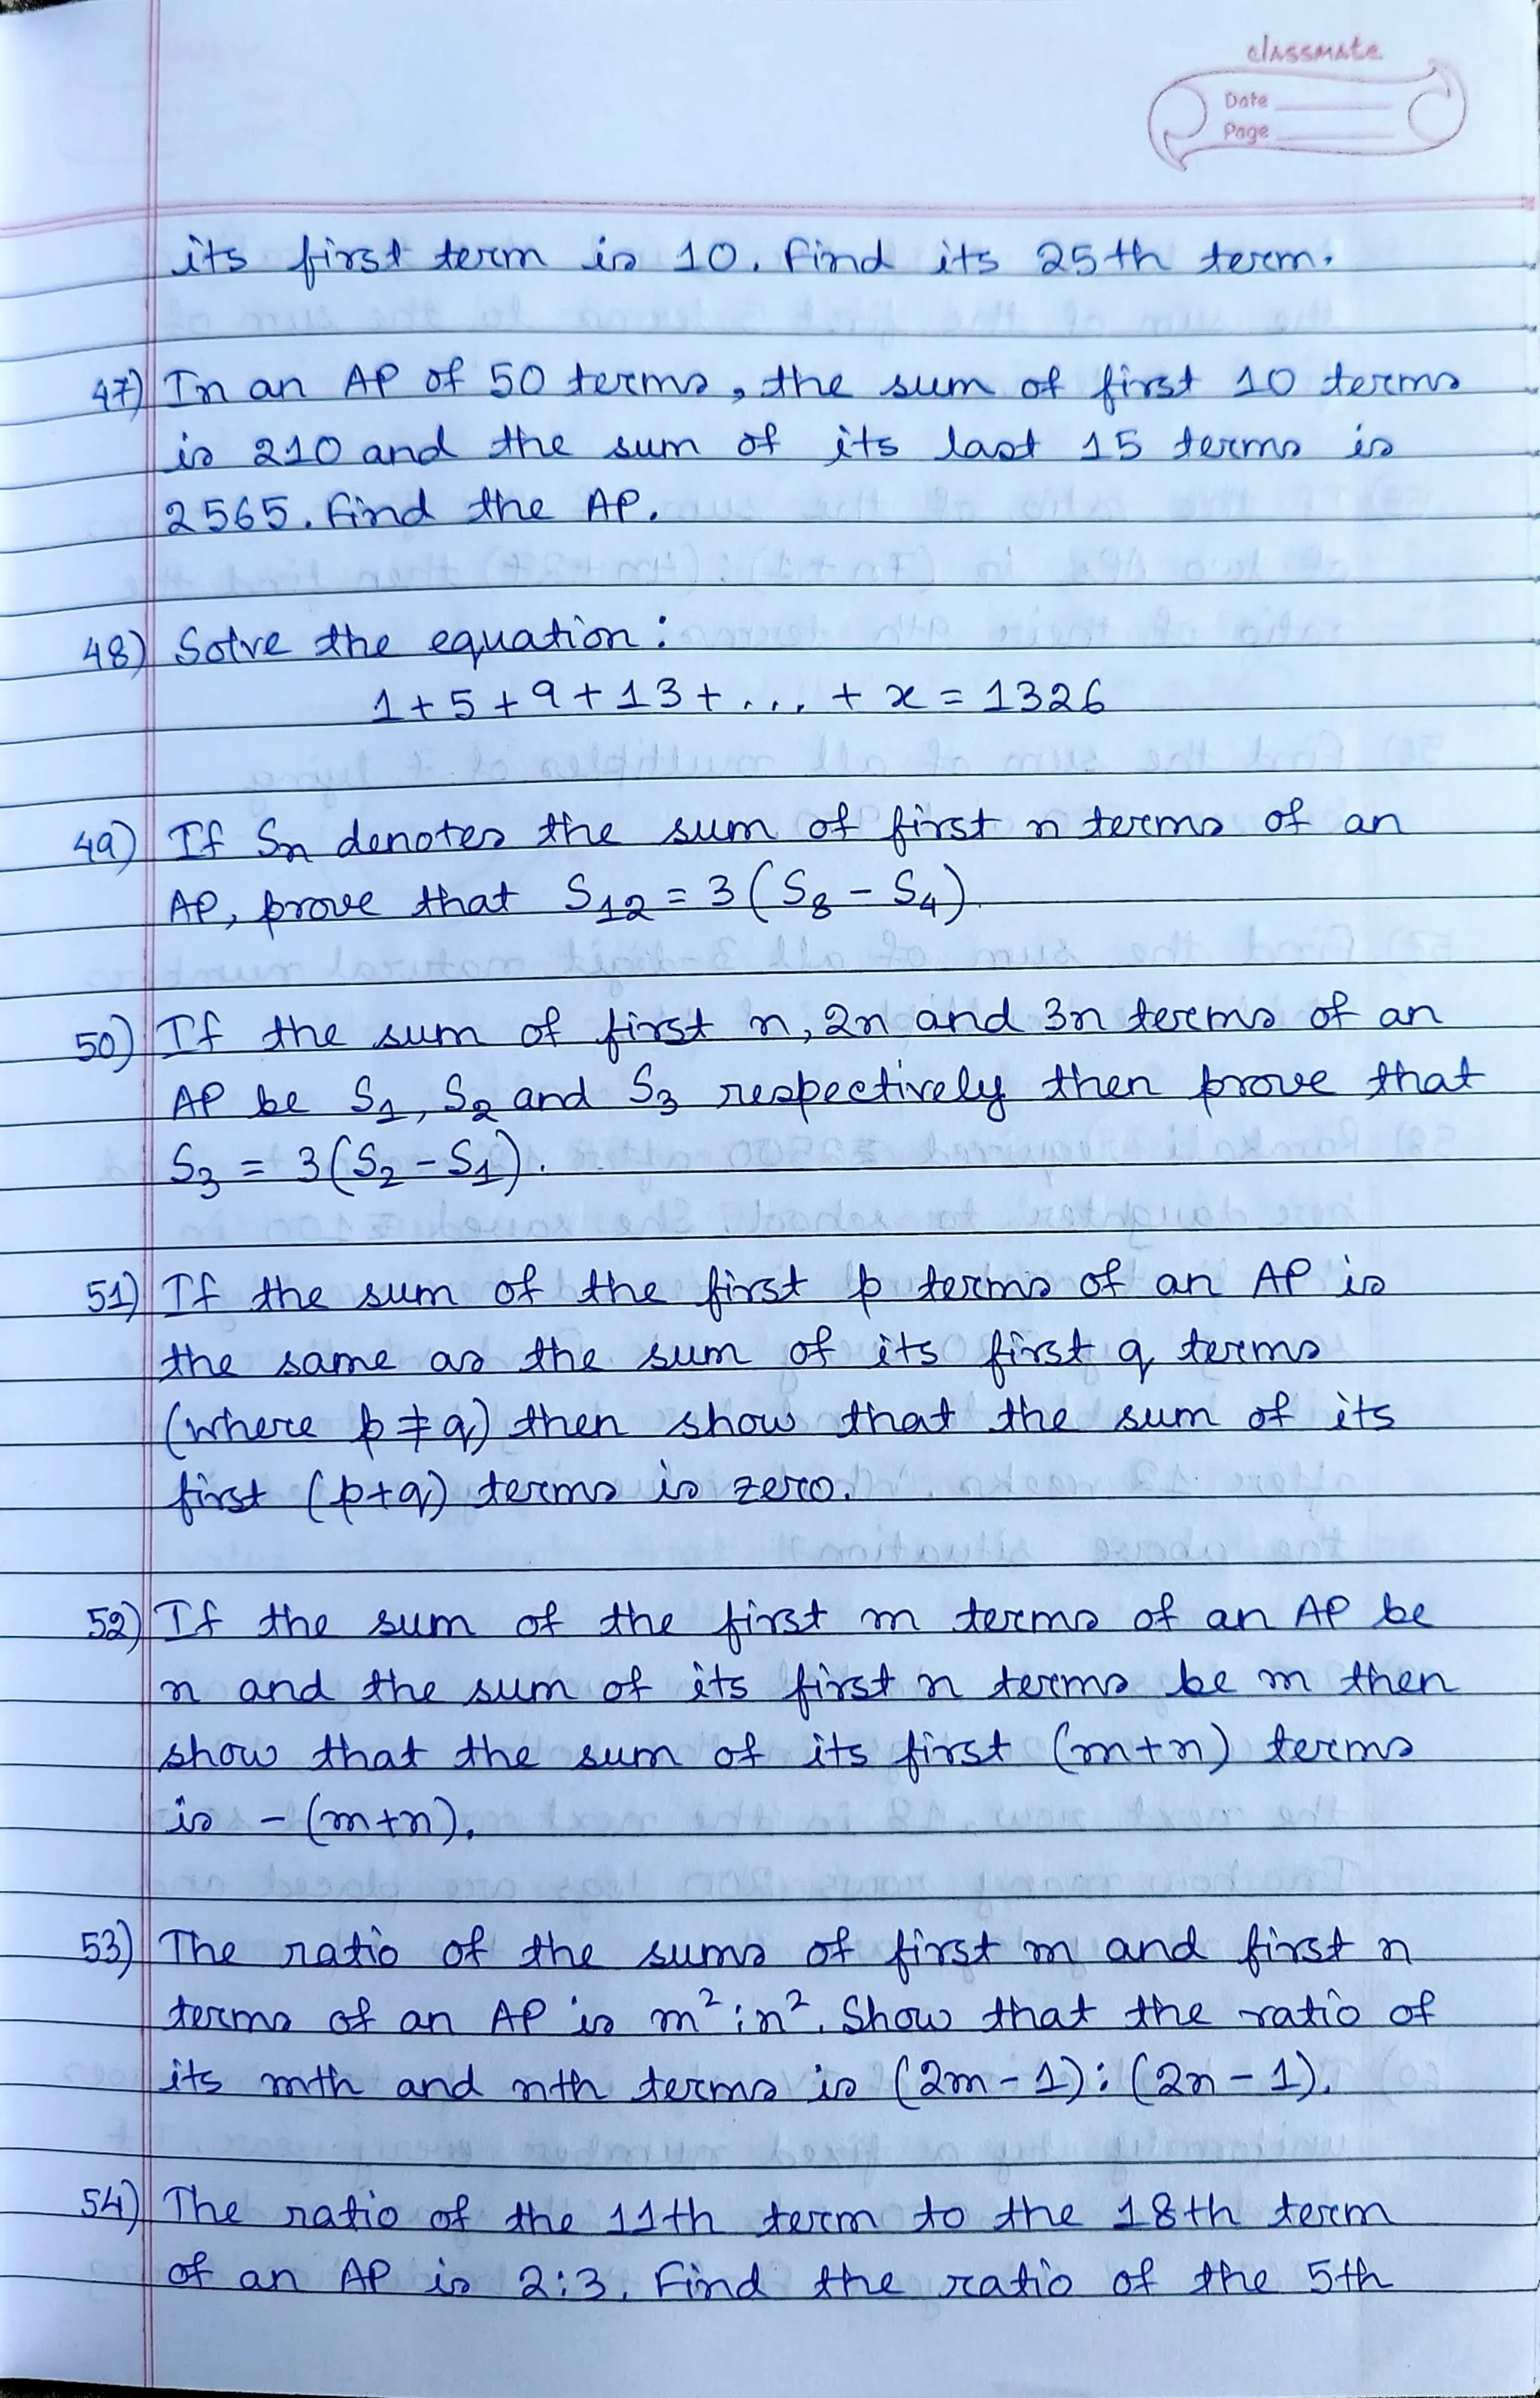 classmate
Date
Page
its first term is 10. Find its 25th term.
47) In an AP of 50 terms, the sum of first 10 terms
is 210 and the sum of its last 15 terms is
2565. Find the AP.
48) Solve the equation:
1+5+9+13+... + x = 1326
49) If Sn denotes the sum of first n terms of an
AP, prove that S₁₂ = 3(S₈ - S₄).
50) If the sum of first n, 2n and 3n terms of an
AP be S₁, S₂ and S₃ respectively then prove that
S₃ = 3(S₂ - S₁).
51) If the sum of the first p terms of an AP is
the same as the sum of its first q terms
(where p ≠ q) then show that the sum of its
first (p+q) terms is zero.
52) If the sum of the first m terms of an AP be
n and the sum of its first n terms be m then
show that the sum of its first (m+n) terms
is - (m+n).
53) The ratio of the sums of first m and first n
terms of an AP is m²:n². Show that the ratio of
its mth and nth terms is (2m-1):(2n-1).
54) The ratio of the 11th term to the 18th term
of an AP is 2:3. Find the ratio of the 5th